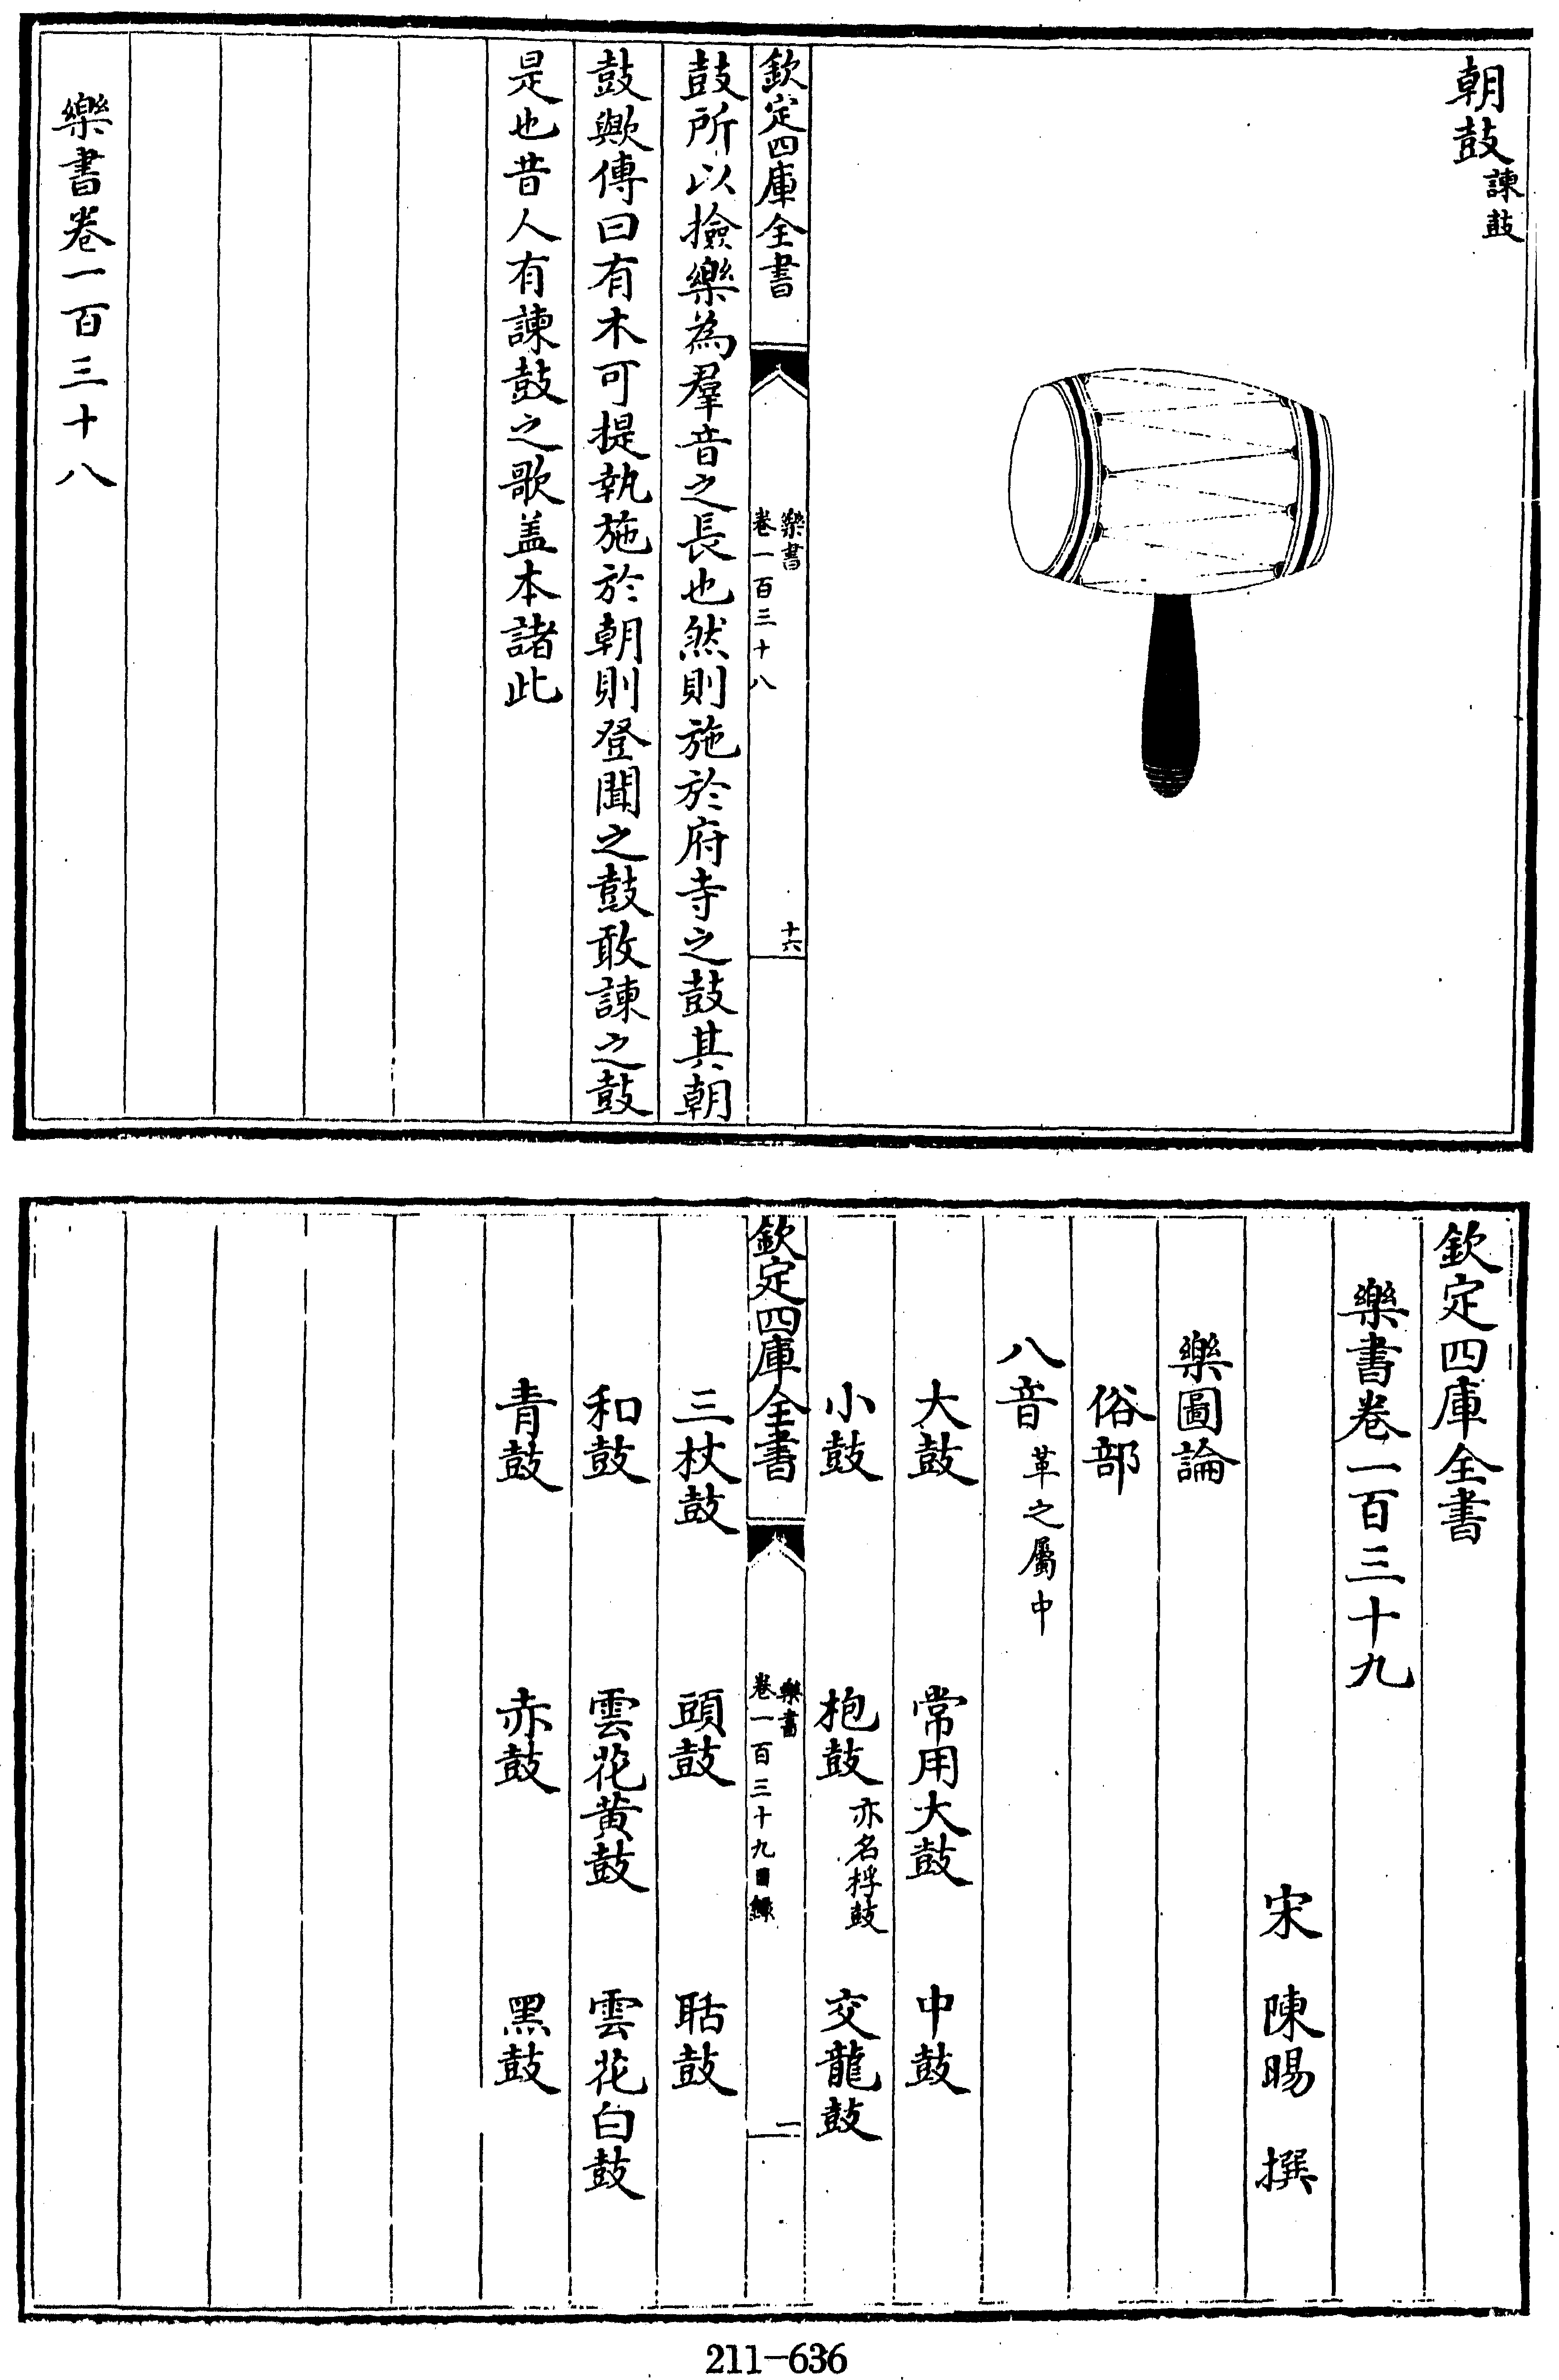 朝鼓諫鼓
欽定四庫全書
樂書
卷一百三十八
十六
鼓所以撿樂為羣音之長也然則施於府寺之鼓其朝
鼓歟傳曰有木可提執施於朝則登聞之鼓敢諫之鼓
是也昔人有諫鼓之歌盖本諸此
樂書卷一百三十八
欽定四庫全書
樂書卷一百三十九
宋 陳暘 撰
樂圖論
俗部
八音革之屬中
大鼓 常用大鼓 中鼓
小鼓 枹鼓亦名桴鼓 交龍鼓
欽定四庫全書
樂書
卷一百三十九目錄
一
三杖鼓 頭鼓 聒鼓
和鼓 雲花黄鼓 雲花白鼓
青鼓 赤鼓 黑鼓
211-636